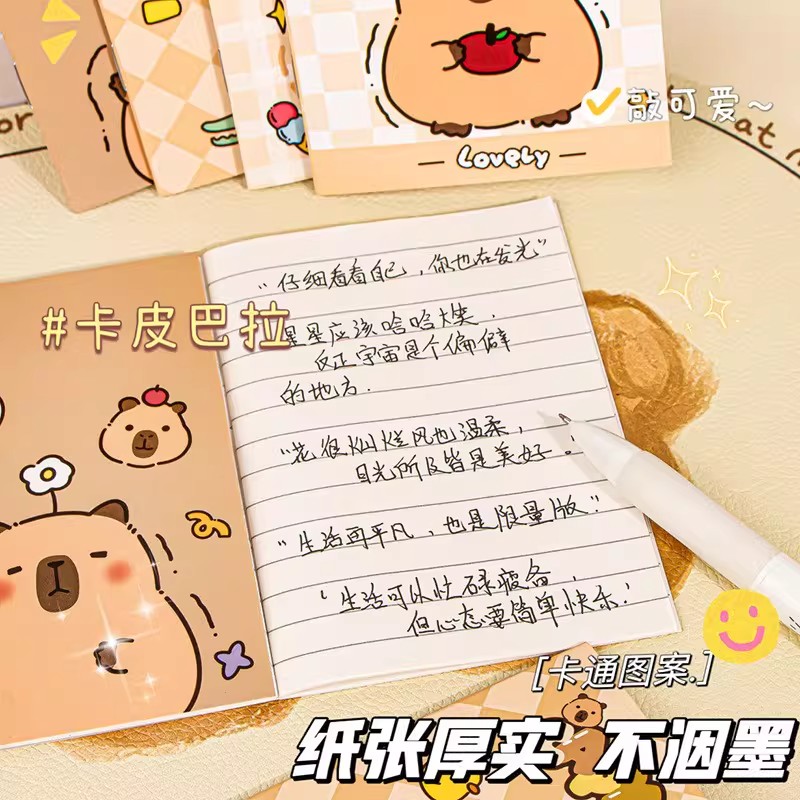 敲可爱~
Lovely
#卡皮巴拉
“仔细看看自己，你也在发光”
星星应该哈哈大笑，
反正宇宙是个偏僻
的地方.
“花很灿烂风也温柔，
目光所及皆是美好。
“生活再平凡，也是限量版”
‘生活可以忙碌疲备，
但心态要简单快乐！
[卡通图案.]
纸张厚实 不洇墨